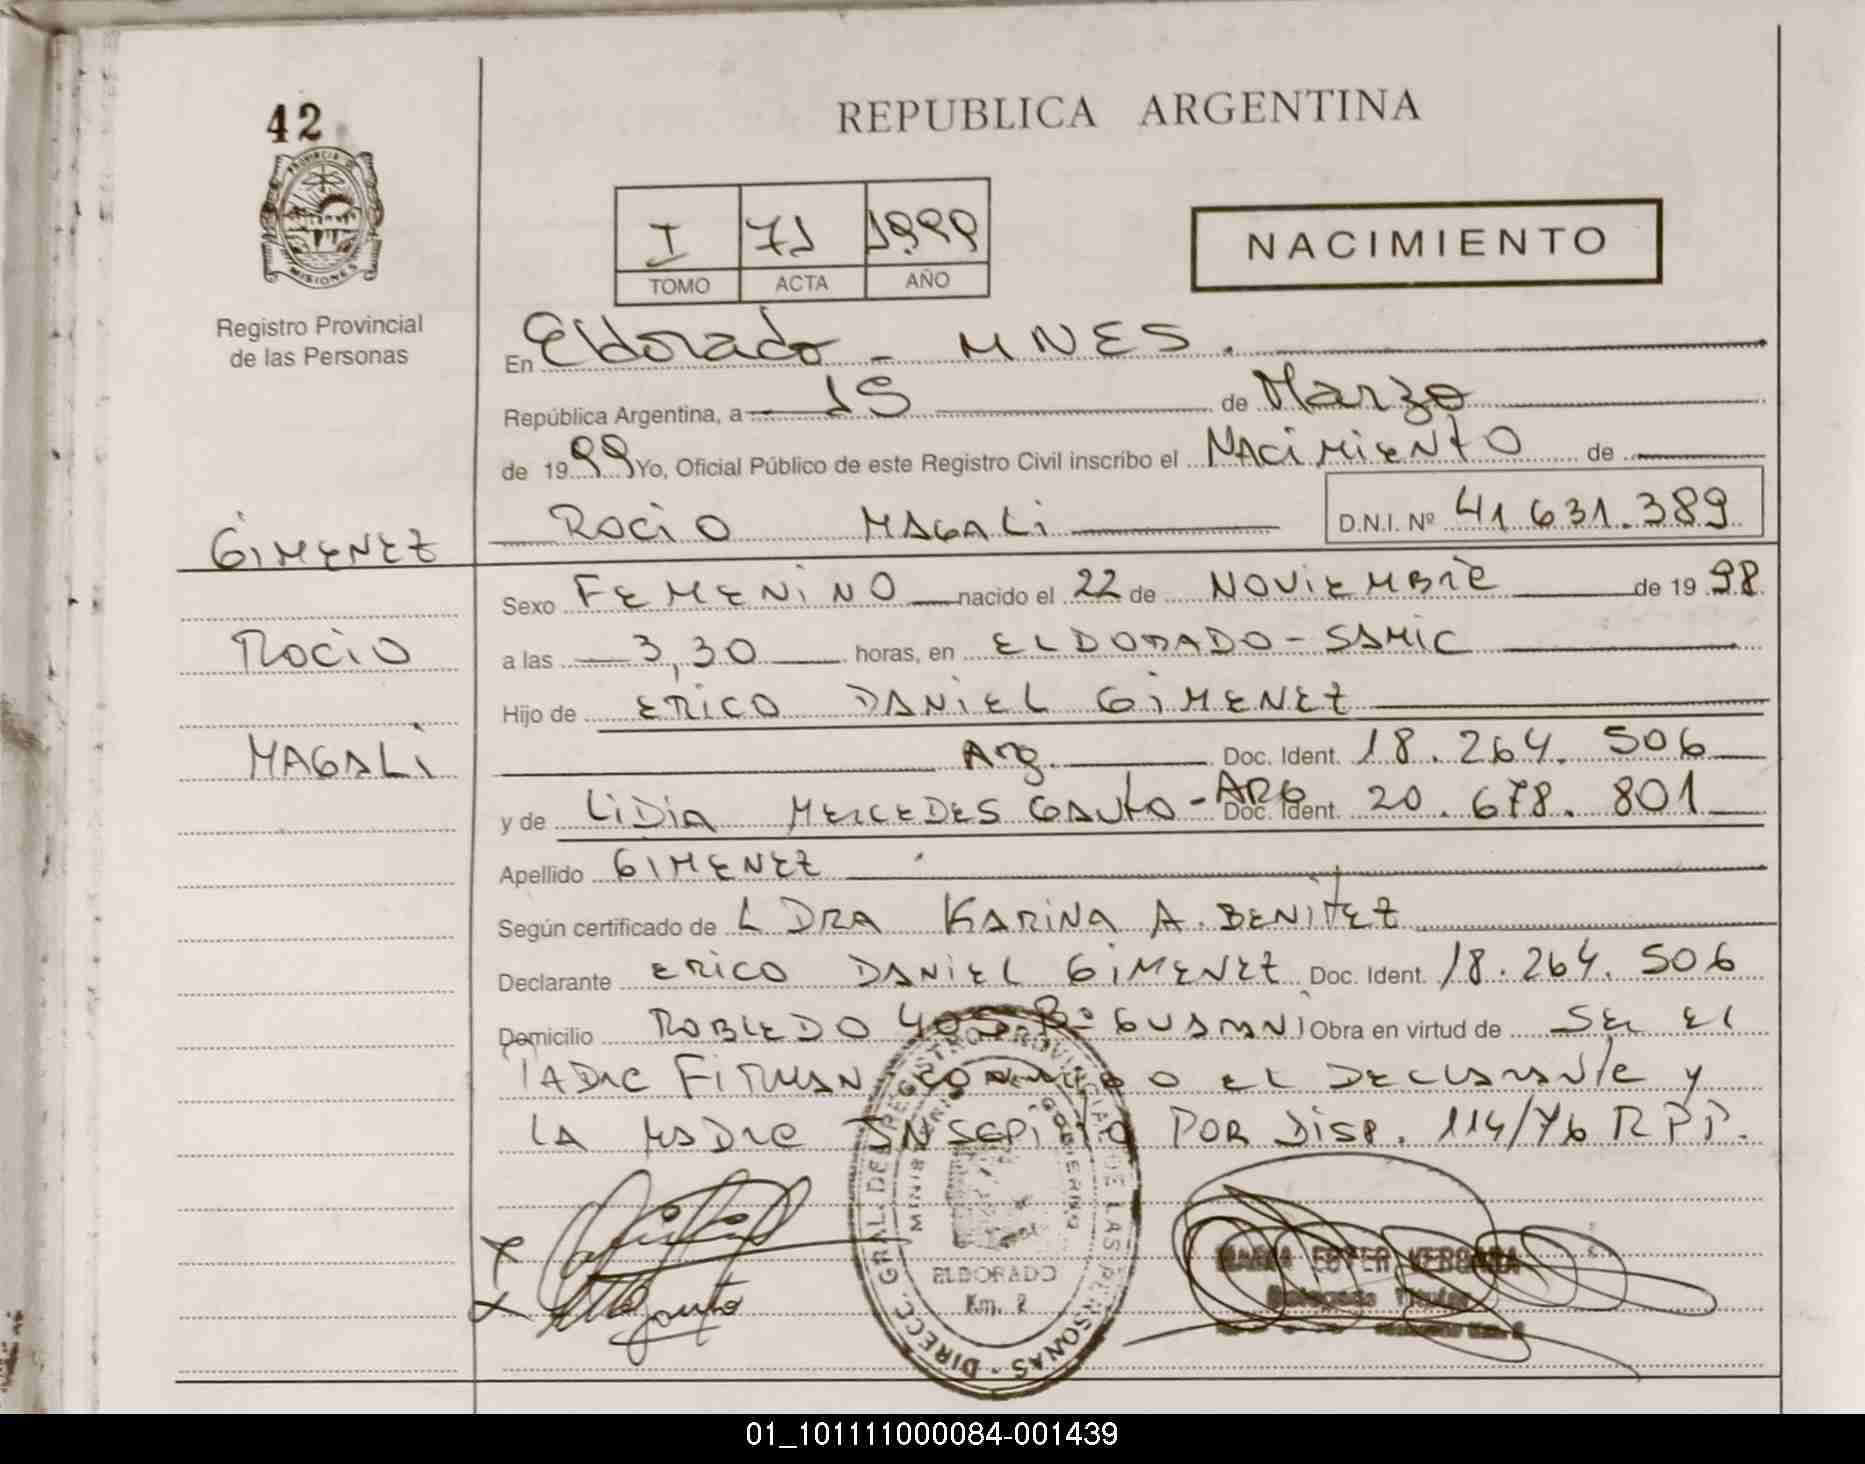 42
PROVINCIA DE
MISIONES
Registro Provincial
de las Personas
GIMENEZ
ROCIO
MAGALI
REPUBLICA ARGENTINA
I 71 1999
TOMO ACTA AÑO
NACIMIENTO
En Eldorado - MNES.
República Argentina, a 15 de Marzo
de 1999 Yo, Oficial Público de este Registro Civil inscribo el NACIMIENTO de
ROCIO MAGALI D.N.I. Nº 41.631.389
Sexo FEMENINO nacido el 22 de NOVIEMBRE de 1998
a las 3,30 horas, en ELDORADO - SAMIC
Hijo de ERICO DANIEL GIMENEZ
Arg. Doc. Ident. 18.264.506
y de LIDIA MERCEDES GAUTO - ARG Doc. Ident. 20.678.801
Apellido GIMENEZ
Según certificado de L DRA KARINA A. BENITEZ
Declarante ERICO DANIEL GIMENEZ Doc. Ident. 18.264.506
Domicilio ROBLEDO 405 Bº GUARANI Obra en virtud de SER EL
PADRE FIRMAN CONMIGO EL DECLARANTE Y
LA MADRE INSCRIPTO POR DISP. 114/76 R.P.P.
DIRECC. GRAL. DEL REGISTRO PROVINCIAL DE LAS PERSONAS
MINISTERIO GOBIERNO
ELDORADO
Km. 2
X
X Gauto
MARIA ESTER VERGARA
Delegada Titular
01_101111000084-001439